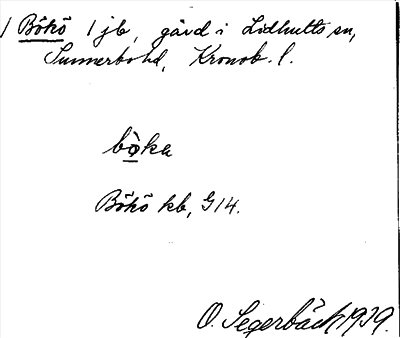 / Bökö 1 jb, gård i Lidhults sn,
Sunnerbo hd, Kronob. l.
bò̤ka
Bökö kb, G 14.
O. Segerbäck 1939.